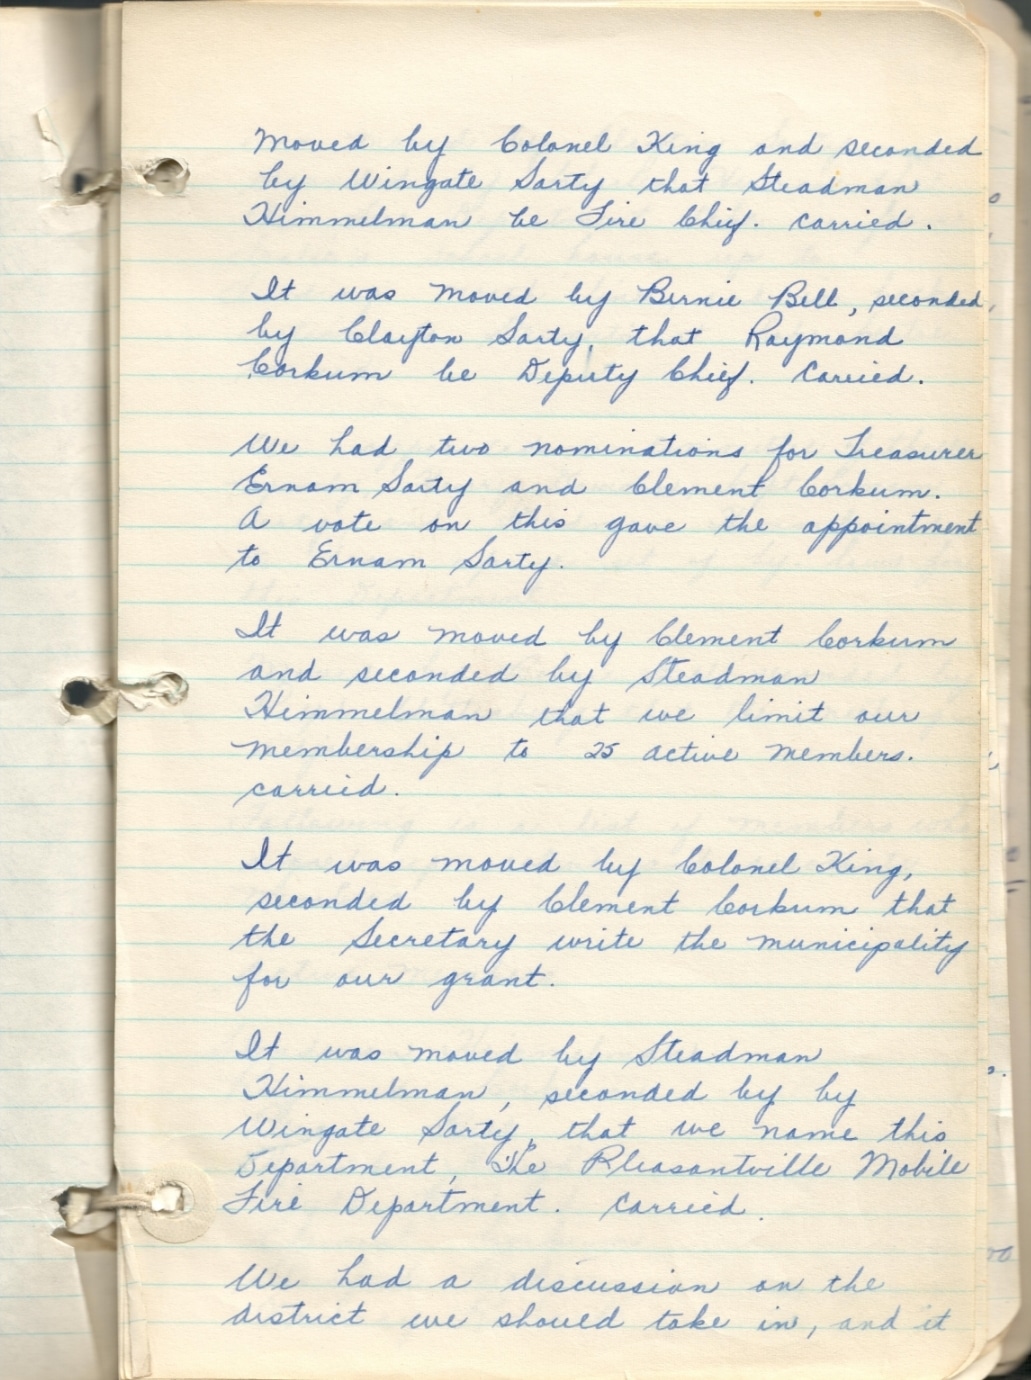 Moved by Colonel King and seconded
by Wingate Sarty that Steadman
Himmelman be Fire Chief. Carried.
It was moved by Bernie Bell, seconded
by Clayton Sarty, that Raymond
Corkum be Deputy Chief. Carried.
We had two nominations for Treasurer
Ernam Sarty and Clement Corkum.
A vote on this gave the appointment
to Ernam Sarty.
It was moved by Clement Corkum
and seconded by Steadman
Himmelman that we limit our
membership to 25 active members.
carried.
It was moved by Colonel King,
seconded by Clement Corkum that
the Secretary write the municipality
for our grant.
It was moved by Steadman
Himmelman, seconded by by
Wingate Sarty, that we name this
Department, "The Pleasantville Mobile
Fire Department. Carried.
We had a discussion on the
district we should take in, and it